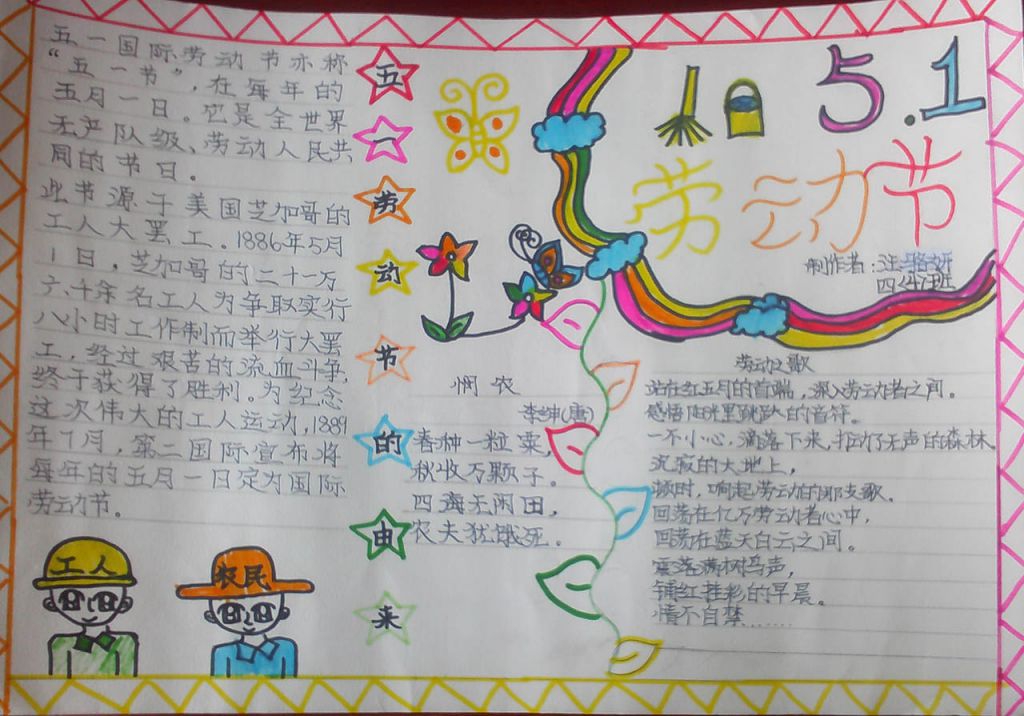 五一国际劳动节亦称
“五一节”,在每年的
五月一日。它是全世界
无产队级、劳动人民共
同的节日。
此节源于美国芝加哥的
工人大罢工。1886年5月
1日,芝加哥的二十一万
六千余名工人为争取实行
八小时工作制而举行大罢
工,经过艰苦的流血斗争,
终于获得了胜利。为纪念
这次伟大的工人运动,1889
年7月,第二国际宣布将
每年的五月一日定为国际
劳动节。
工人
农民
五一劳动节的由来
悯农
李绅(唐)
春种一粒粟,
秋收万颗子。
四海无闲田,
农夫犹饿死。
5.1
劳动节
制作者:汪
四(4)班
劳动之歌
站在红五月的首端,深入劳动者之间。
感悟阳光里跳跃的音符。
一不小心,滴落下来,打动了无声的森林。
沉寂的大地上,
顿时,响起劳动的那支歌。
回荡在亿万劳动者心中,
回荡在蓝天白云之间。
震落满树鸟声,
铺红挂彩的早晨。
情不自禁……